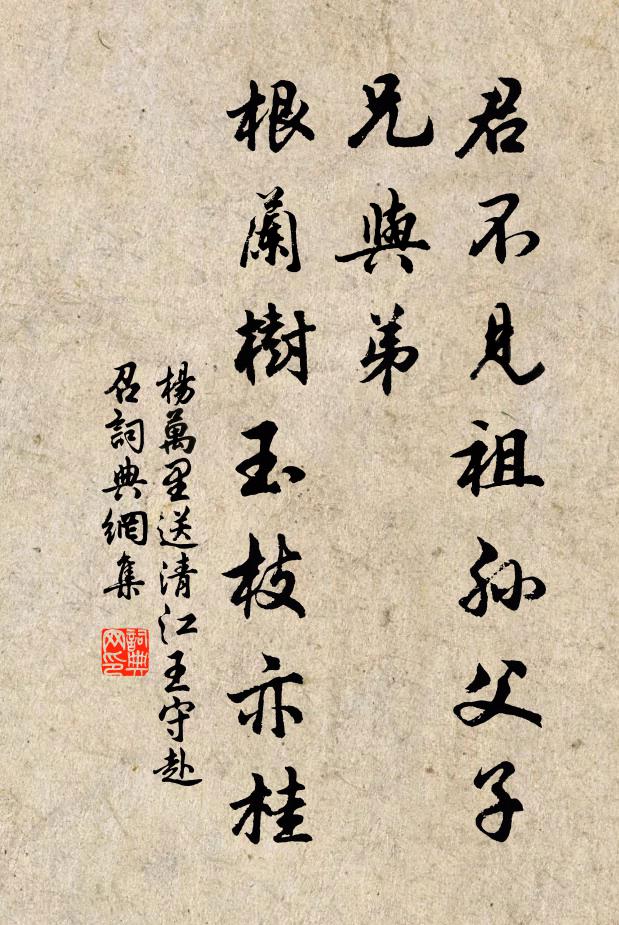 君不見祖孫父子
兄與弟
根蘭樹玉枝亦桂
楊萬里送清江王守赴
召詞典網集
詞典
网印